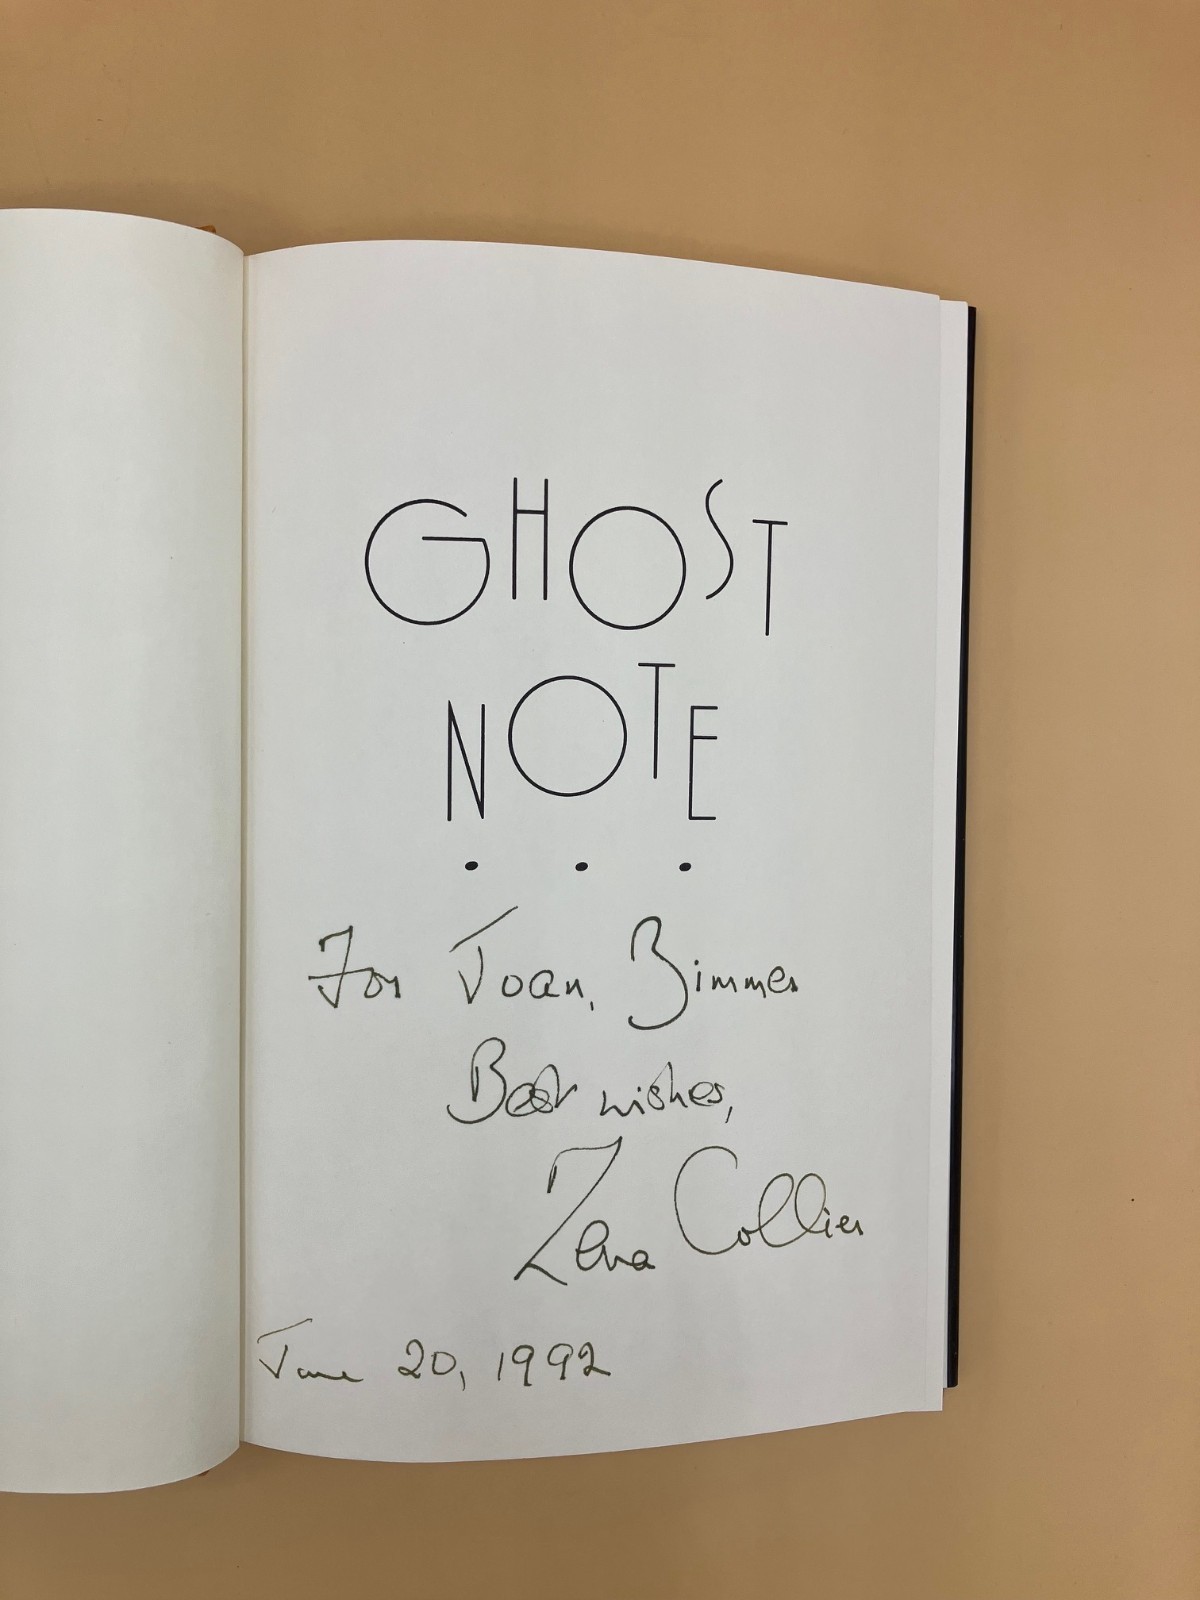 GHOST
NOTE
• • •
For Joan, Bimmer
Best wishes,
Zena Collier
June 20, 1992